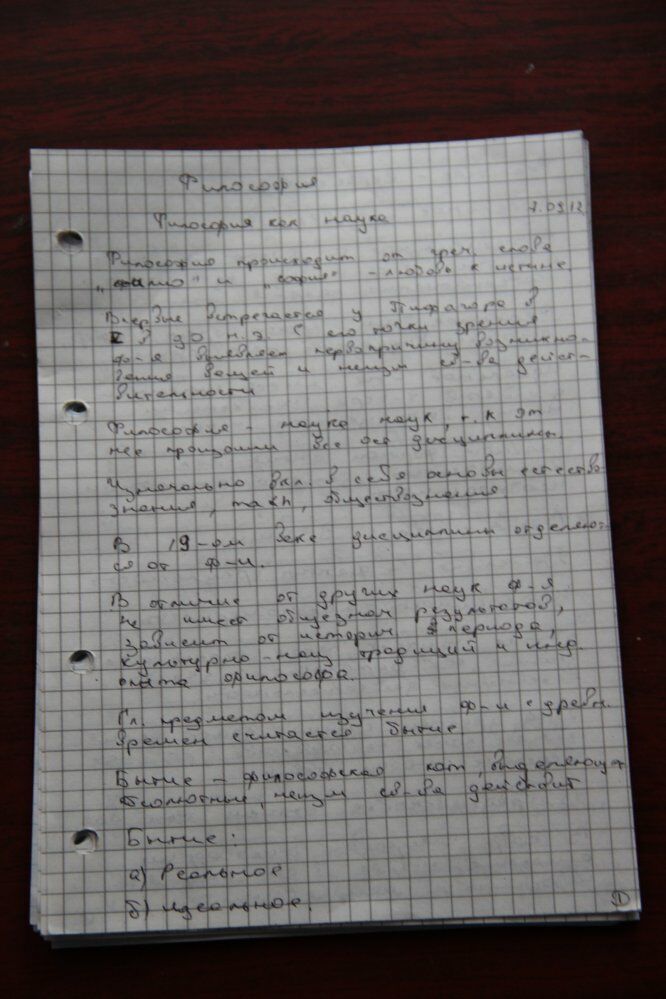 Философия
7.09.12
Философия как наука
Философия происходит от греч. слова
„фило" и „софия" - любовь к истине
Впервые встречается у Пифагора в
в до н.э. С его точки зрения
ф-я выявляет первопричину возникно-
вения вещей и неизм св-ва дейст-
вительности
Философия - наука наук, т.к от
нее произошли все дисциплины.
Изначально вкл. в себя основы естество-
знания, обществознания
В 19-ом веке дисциплины отделяют-
ся от ф-и.
В отличие от других наук ф-я
не имеет общезнач результатов,
зависит от историч периода,
культурно-нац традиций и инд.
опыта философа.
Гл. предметом изучения ф-и с древн.
времен считается бытие
Бытие - философская кат, выделяющая
абсолютные, неизм св-ва действит
Бытие:
а) Реальное
б) идеальное.
①